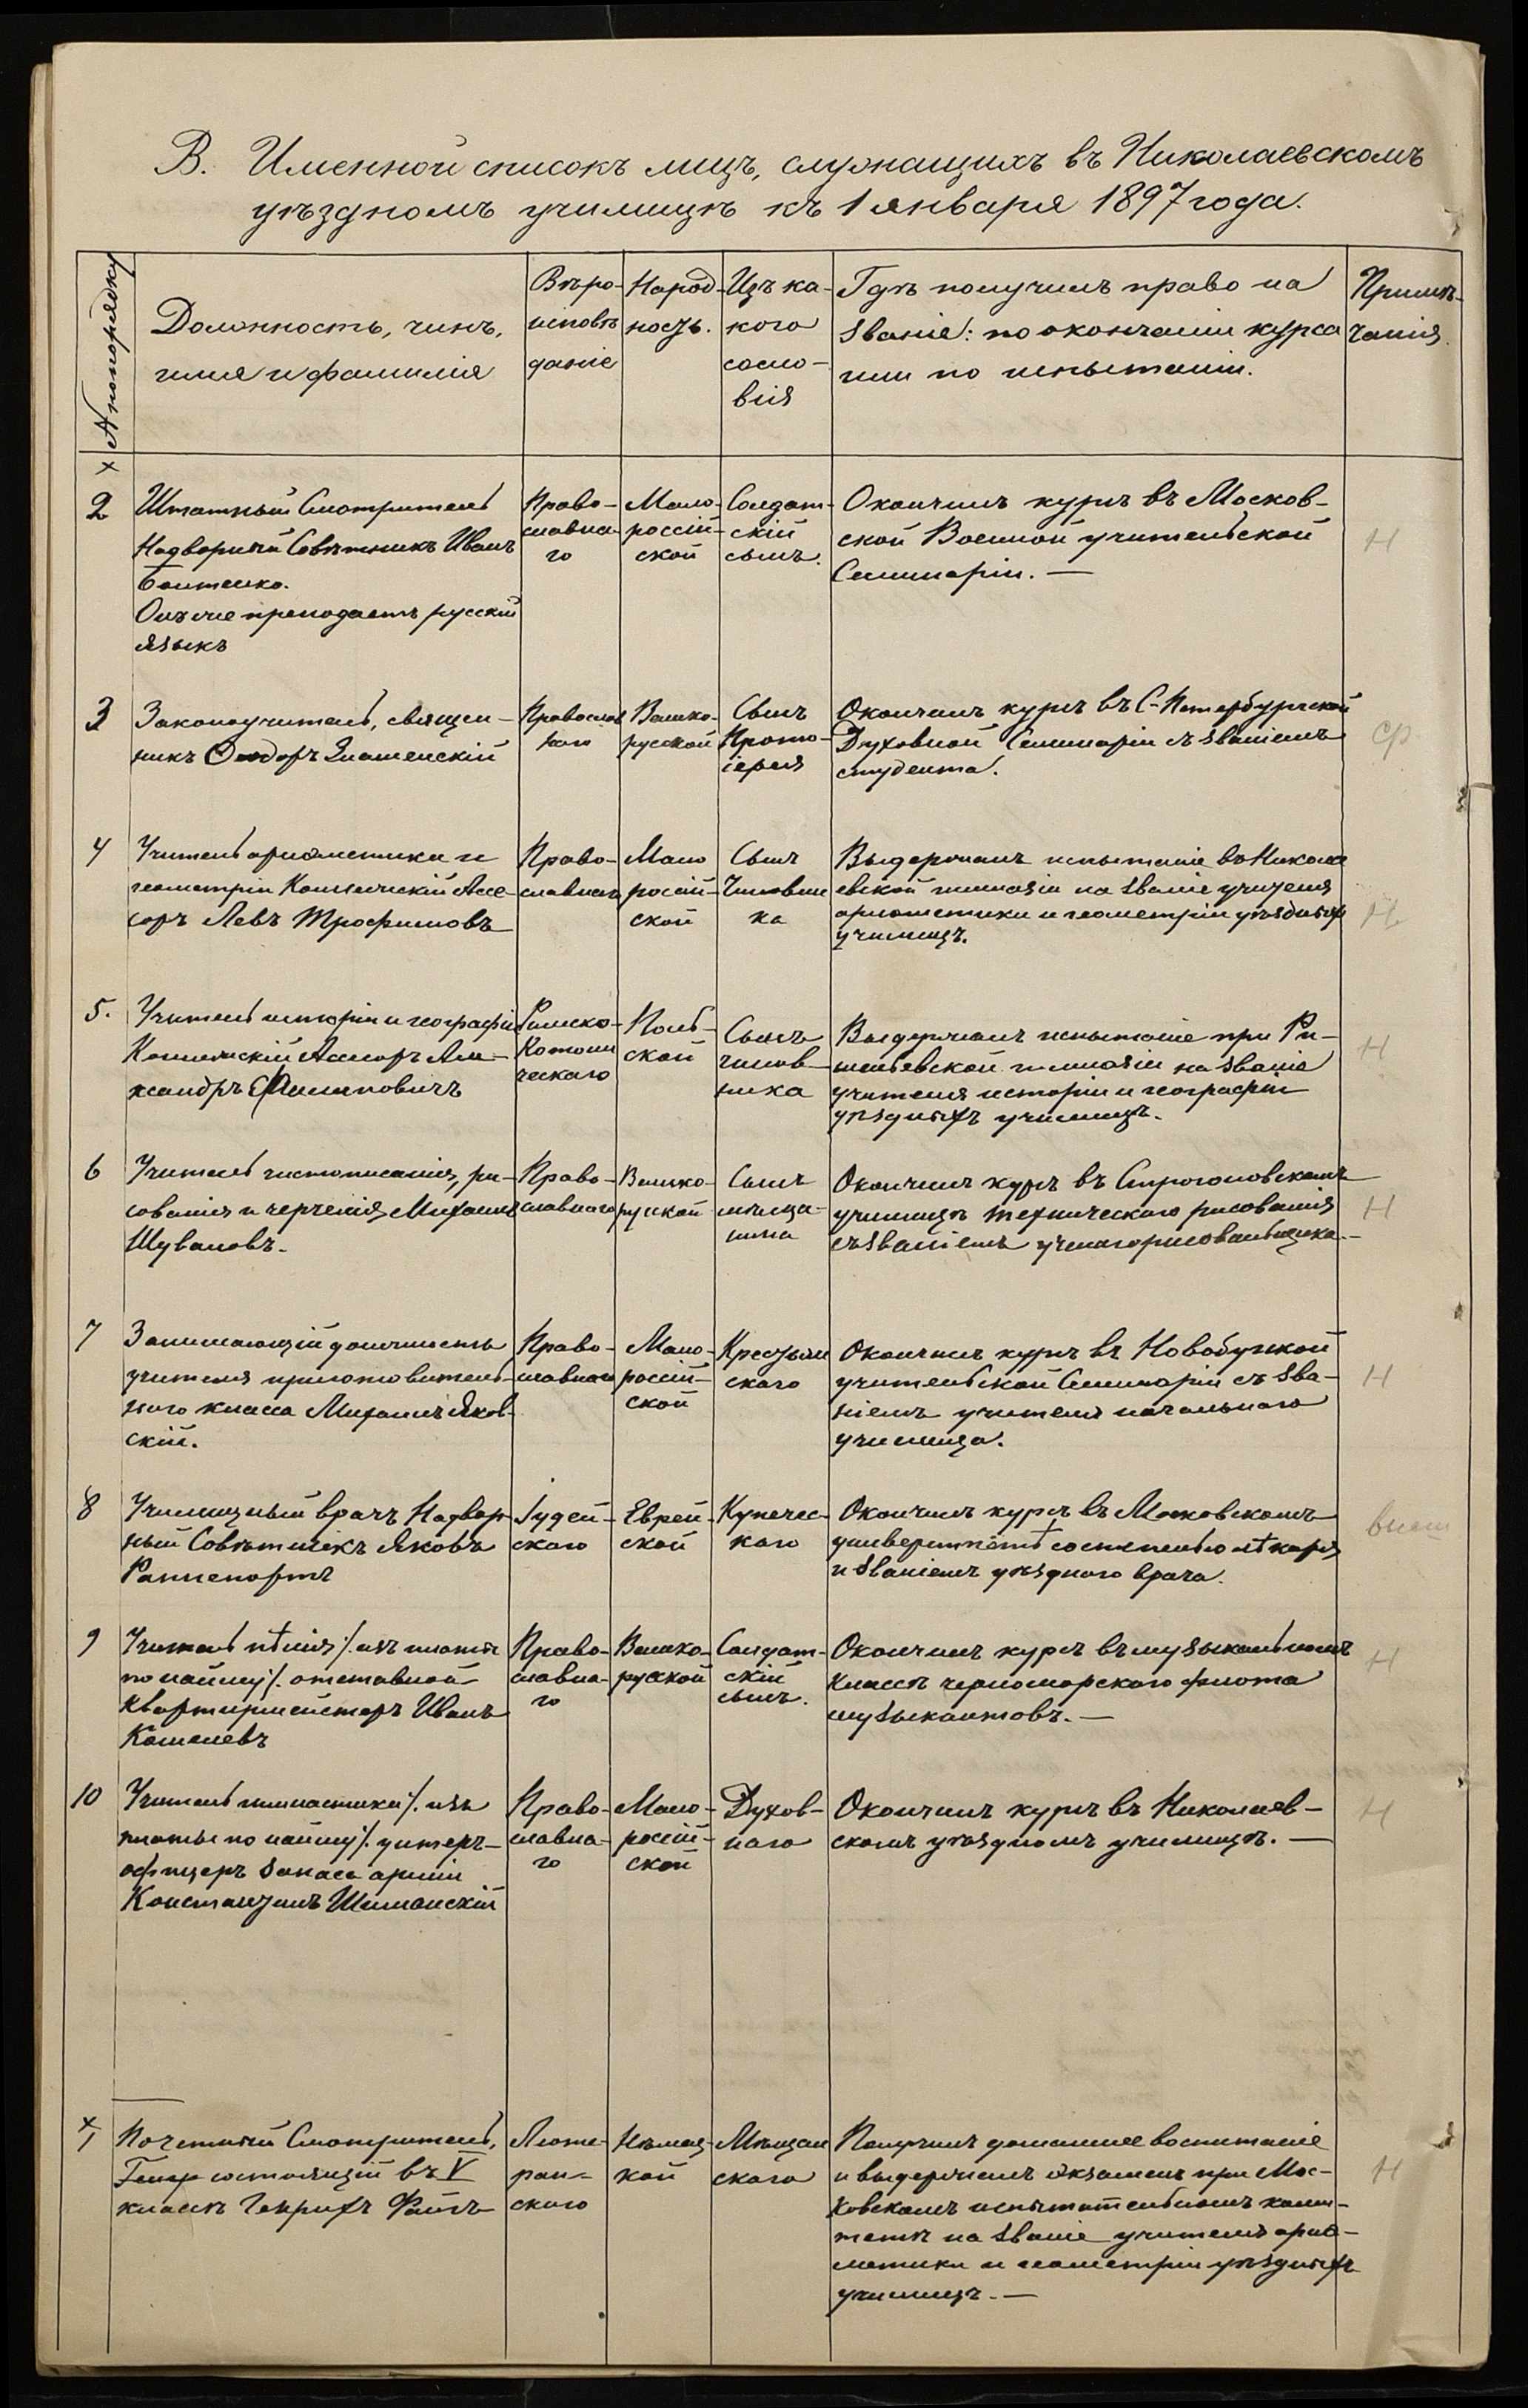 В. Именной списокъ лицъ, служащихъ въ Николаевскомъ
уѣздномъ училищѣ къ 1 января 1897 года.
№ по порядку
Должность, чинъ,
имя и фамилія
Вѣро-
исповѣ
даніе
Народ-
ность.
Изъ ка-
кого
сосло-
вія
Гдѣ получилъ право на
званіе: по окончаніи курса
или по испытаніи.
Примѣ-
чанія.
×
2
Штатный Смотритель
Надворный Совѣтникъ Иванъ
Бантенко.
Онъ же преподаетъ русскій
языкъ
Право-
славна-
го
Мало-
россій-
ской
Солдат-
скій
сынъ.
Окончилъ курсъ въ Москов-
ской Военной учительской
Семинаріи. —
Н
3
Законоучитель, священ-
никъ Ѳеодоръ Знаменскій
Православ
наго
Велико-
русской
Сынъ
Прото-
іерея
Окончилъ курсъ въ С-Петербургской
Духовной Семинаріи съ званіемъ
студента.
ср
4
Учитель ариѳметики и
геометріи Коллежскій Ассе-
соръ Левъ Трофимовъ
Право-
славнаго
Мало
россій-
ской
Сынъ
Чиновни
ка
Выдержалъ испытаніе въ Никола
евской гимназіи на званіе учителя
ариѳметики и геометріи уѣздныхъ
училищъ.
Н
5.
Учитель исторіи и географіи
Коллежскій Ассесоръ Але-
ксандръ
Римско-
Католи
ческаго
Поль-
ской
Сынъ
чинов-
ника
Выдержалъ испытаніе при Ри-
шельевской гимназіи на званіе
учителя исторіи и географіи
уѣздныхъ училищъ.
Н
6
Учитель чистописанія, ри-
сованія и черченія Михаилъ
Шуваловъ.
Право-
славнаго
Велико-
русской
Сынъ
мѣща-
нина
Окончилъ курсъ въ Строгоновскомъ
училищѣ техническаго рисованія
съ званіемъ ученаго рисовальщика. —
Н
7
Занимающій должность
учителя приготовитель-
наго класса Михаилъ Яков-
скій.
Право-
славнаго
Мало-
россій-
ской
Крестьян
скаго
Окончилъ курсъ въ Новобугской
учительской Семинаріи съ зва-
ніемъ учителя начальнаго
училища.
Н
8
Училищный врачъ Надвор-
ный Совѣтникъ Яковъ
Раппепортъ
Іудей-
скаго
Еврей-
ской
Купечес-
каго
Окончилъ курсъ въ Московскомъ
университетѣ со степенью лѣкаря
и званіемъ уѣзднаго врача.
высш
9
Учитель пѣнія /. изъ платы
по найму /. отставной
квартирмейстеръ Иванъ
Кошелевъ
Право-
славна-
го
Велико-
русской
Солдат-
скій
сынъ.
Окончилъ курсъ въ музыкальномъ
классѣ черноморскаго флота
музыкантовъ. —
Н
10
Учитель гимнастики /. изъ
платы по найму /. унтеръ-
офицеръ запаса арміи
Константинъ Шиманскій
Право-
славна-
го
Мало-
россій-
ской
Духов-
наго
Окончилъ курсъ въ Николаев-
скомъ уѣздномъ училищѣ. —
Н
×
1
Почетный Смотритель,
состоящій въ V
классѣ Генрихъ
Люте-
ран-
скаго
Нѣмец-
кой
Мѣщан
скаго
Получилъ домашнее воспитаніе
и выдержалъ экзаменъ при Мос-
ковскомъ испытательномъ коми-
тетѣ на званіе учителя ариѳ-
метики и геометріи уѣздныхъ
училищъ. —
Н